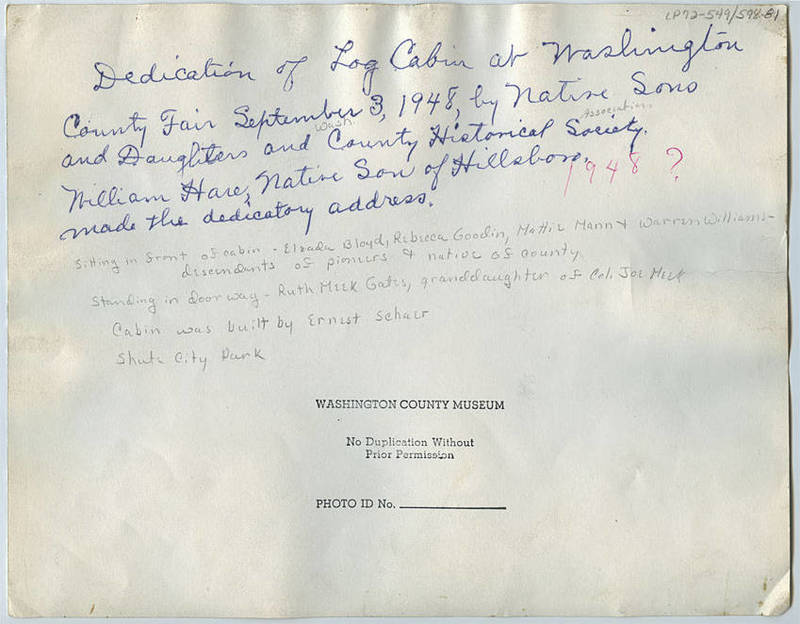 LP72-549/598-81
Dedication of Log Cabin at Washington
County Fair September 3, 1948, by Native Sons
Association
and Daughters and Wash. County Historical Society.
William Hare, Native Son of Hillsboro,
1948 ?
made the dedicatory address.
Sitting in front of cabin - Elzada Bloyd, Rebecca Goodin, Mattie Mann & Warren Williams -
descendants of pioneers & native of county.
Standing in doorway - Ruth Meek Gates, granddaughter of Col. Joe Meek
Cabin was built by Ernest
Shute City Park
WASHINGTON COUNTY MUSEUM
No Duplication Without
Prior Permission
PHOTO ID No.